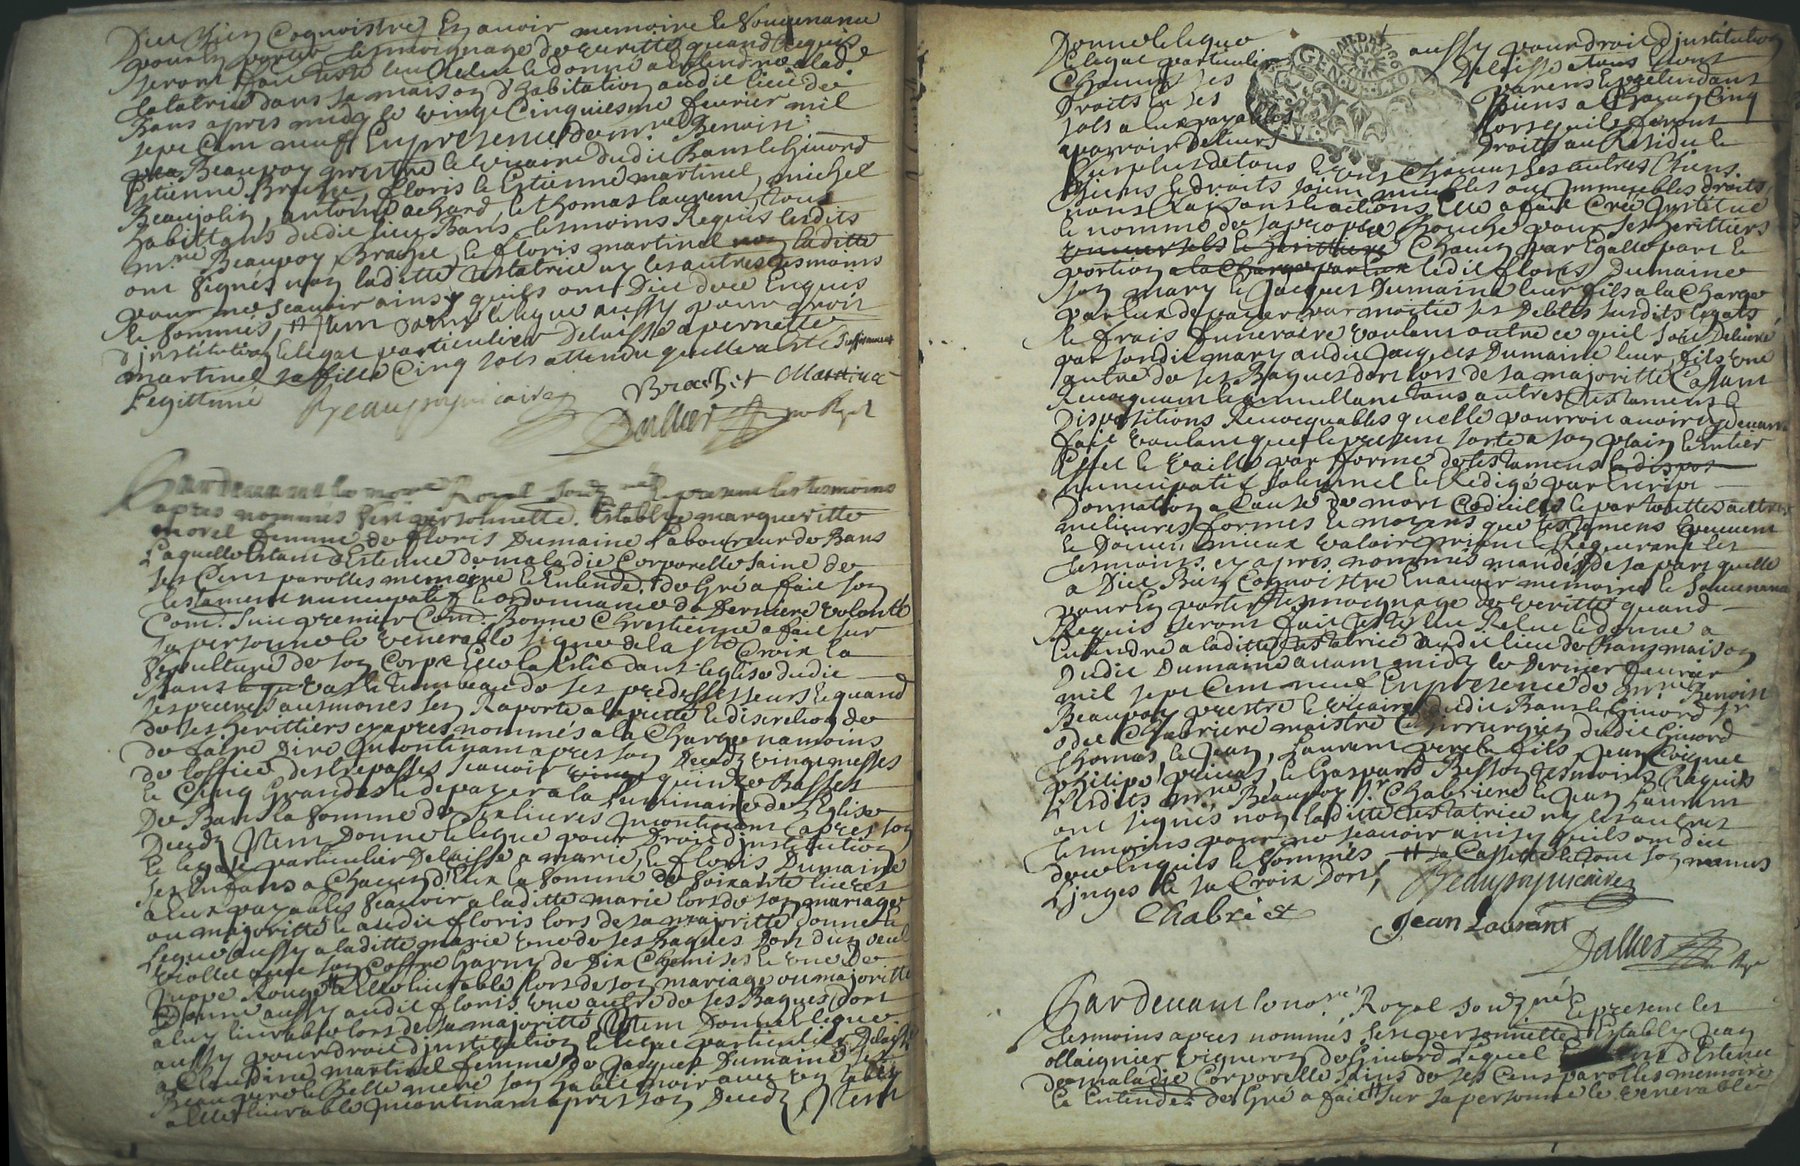 Dict Bien Cognoistre En avoir memoire et souvenance
pour en porter tesmoignage de veritté quand Requis
seront faict testé leu Relu et donné a entendre a lad.
testatrice dans sa maison d'habitation audit lieu de
Bans apres midy le vingt Cinquiesme febvrier mil
sept Cent neuf En presence de mre Benoist
Beaupoy prestre et vicaire dudit Bans et Givord
Estienne Brachet, floris et Estienne martinel, michel
Beaujolin, antoine achard, et thomas laurent tous
habittans dudit lieu Bans tesmoins Requis lesdits
mre Beaupoy, Brachet, et floris martinel ladite
ont signés non laditte testatrice ny les autres tesmoins
pour ne scavoir ainsy quils ont Dict de ce Enquis
et sommés, Item donne et legue aussy pour droit
d'institution et legat particulier delaisse a pernette
martinel sa fille Cinq sols attendu quelle a esté suffisament
legittimé
Beaupoy vicaire Brachet Martinel
Dallier no Ryal
Pardevant le nore Royal soubzné Et present les tesmoins
apres nommés feut personnellemt Establie margueritte
morel femme de floris Dumaine laboureur de Bans
Laquelle Estant detenue de maladie Corporelle saine de
ses Cens parolles memoire et Entendemt de Gré a fait son
testament nuncupatif et ordonnance de derniere volonté
Comme suit premier Comme Bonne Chrestienne a fait sur
sa personne le venerable signe de la Ste Croix la
sepulture de son Corps Eslue dans l'eglise dudit
Bans et au tumbeau de ses predessesseurs et quand
ses prieres ausmones sen Raporte a la pietté et discretion de
de ses herittiers cy apres nommés a la Charge neamoins
de faire dire Incontinant apres son deceds vingt messes
de l'office des trepassés scavoir quinze Basses
et Cinq Grandes et de payer a la luminaire de l'Eglise
De Bans la somme de six livres Incontinant apres son
Deceds Item donne et legue pour droit d'institution
et legat particulier Delaisse a marie, et floris Dumaine
ses enfans a chacun d'eux la somme de soixante livres
a eux payables scavoir a laditte marie lors de son mariage
ou majoritté et audit floris lors de sa majoritté donne et
legue aussy a laditte marie une de ses Bagues Dort d'un seul
violle avec son coffre Garny de dix Chemises et une de
Juppe Rouge a elle livrable lors de son mariage ou majoritté
Donne aussy audit floris une autre de ses Bagues Dort
a luy livrable lors de sa majoritté, Item donne et legue
aussy pour droit d'institution et legat particulier Delaisse
a Claudine martinel femme de Jacques Dumaine
Beau pere et Belle mere son
a elle livrable Incontinant apres son Deceds Item
Donne et legue aussy pour droit d'institution
et legat particulier Delaisse a tous
Chacuns ses parens et pretendant
Droits en ses biens a Chacun Cinq
sols a eux payables lors quils feront
aparoir de leurs droits au Residu et
surplus de tous et uns Chacuns ses autres Biens
Biens et droits soient meubles ou Immeubles droits
noms Raisons et actions Elle a fait Creé Institué
et nommé de sa propre Bouche pour ses herittiers
universels Chacun par Egalle part et
portion a la Charge par eux ledit floris Dumaine
son mary et Jacques Dumaine leur fils a la Charge
par eux de payer par moitié ses debtes susdits legats
et frais funeraire voulant outre ce quil soit Delivré
par sondit mary audit Jacques Dumaine leur fils une
autre de ses Bagues dort lors de sa majoritté Cassant
Revocquant et annullant tous autres testaments et
Dispositions Revocquables quelle pourroit avoir cy devant
fait voulant que le present sorte a son plain et Entier
Effet et vaille par forme de testament
nuncupatif solemnel et Redigé par Escript
Donnation a Cause de mort Codicille et par touttes autres
melieures formes et moyens que testaments Peuvent
et Doivent mieux valoir priant et Requerant les
tesmoins cy apres nommés mandés de sa part quelle
a Dict Bien Cognoistre En avoir memoire et souvenance
pour En porter tesmoignage de veritté quand
Requis seront fait testé leu Relu et donné a
Entendre a laditte testatrice audit lieu de Bans maison
dudit Dumaine avant midy le Dernier febvrier
mil sept Cent neuf En presence de mre Benoist
Beaupoy prestre et vicaire dudit Bans et Givord Sr
Chabriere maistre Chirurgien dudit Givord
thomas, et Jean, Laurent pere et fils, Jean Coignet
philipe et Gaspard Besson tesmoins Requis
lesdits mre Beaupoy Sr Chabriere et Jean Laurant
ont signés non laditte testatrice ny les autres
tesmoins pour ne scavoir ainsy quils ont dict
de ce enquis et sommés # sa Cassette et tous son menus
Linges et sa Croix Dort,
Beaupoy vicaire
Chabriet Jean Laurant
Dallier no Ryal
Pardevant le nore Royal soubzné Et present les
tesmoins apres nommés feut personnellemt Estably Jean
ollaignier vigneron de Givord lequel Estant d'Estenu
de maladie Corporelle sains de ses Cens parolles memoire
et Entendemt de Gré a fait sur sa personne le venerable